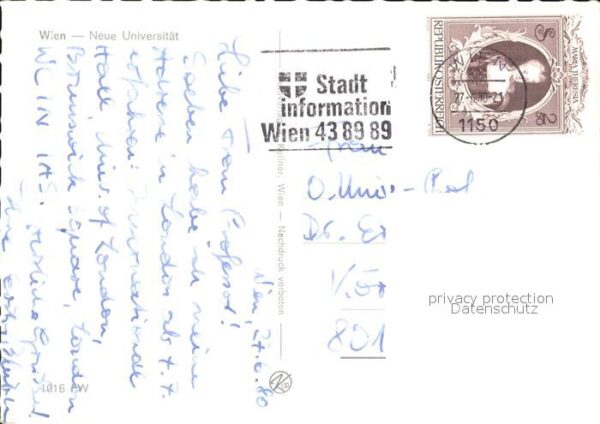 Wien — Neue Universität
Stadt
information
Wien 43 89 89
1150
REPUBLIK ÖSTERREICH
MARIA THERESIA
2S
Wien, 27.6.80
Liebe Frau Professor!
Soeben habe ich meine
Adresse in London ab 1.7.
erfahren: Internationale
Hall, Univ. of London,
Brunswick Square, London
WC1N 1AS. Herzliche Grüße!
Ihre
Frau
O. Univ.-Prof
Dr.
801
Kellner, Wien — Nachdruck verboten
1016 PW
privacy protection
Datenschutz